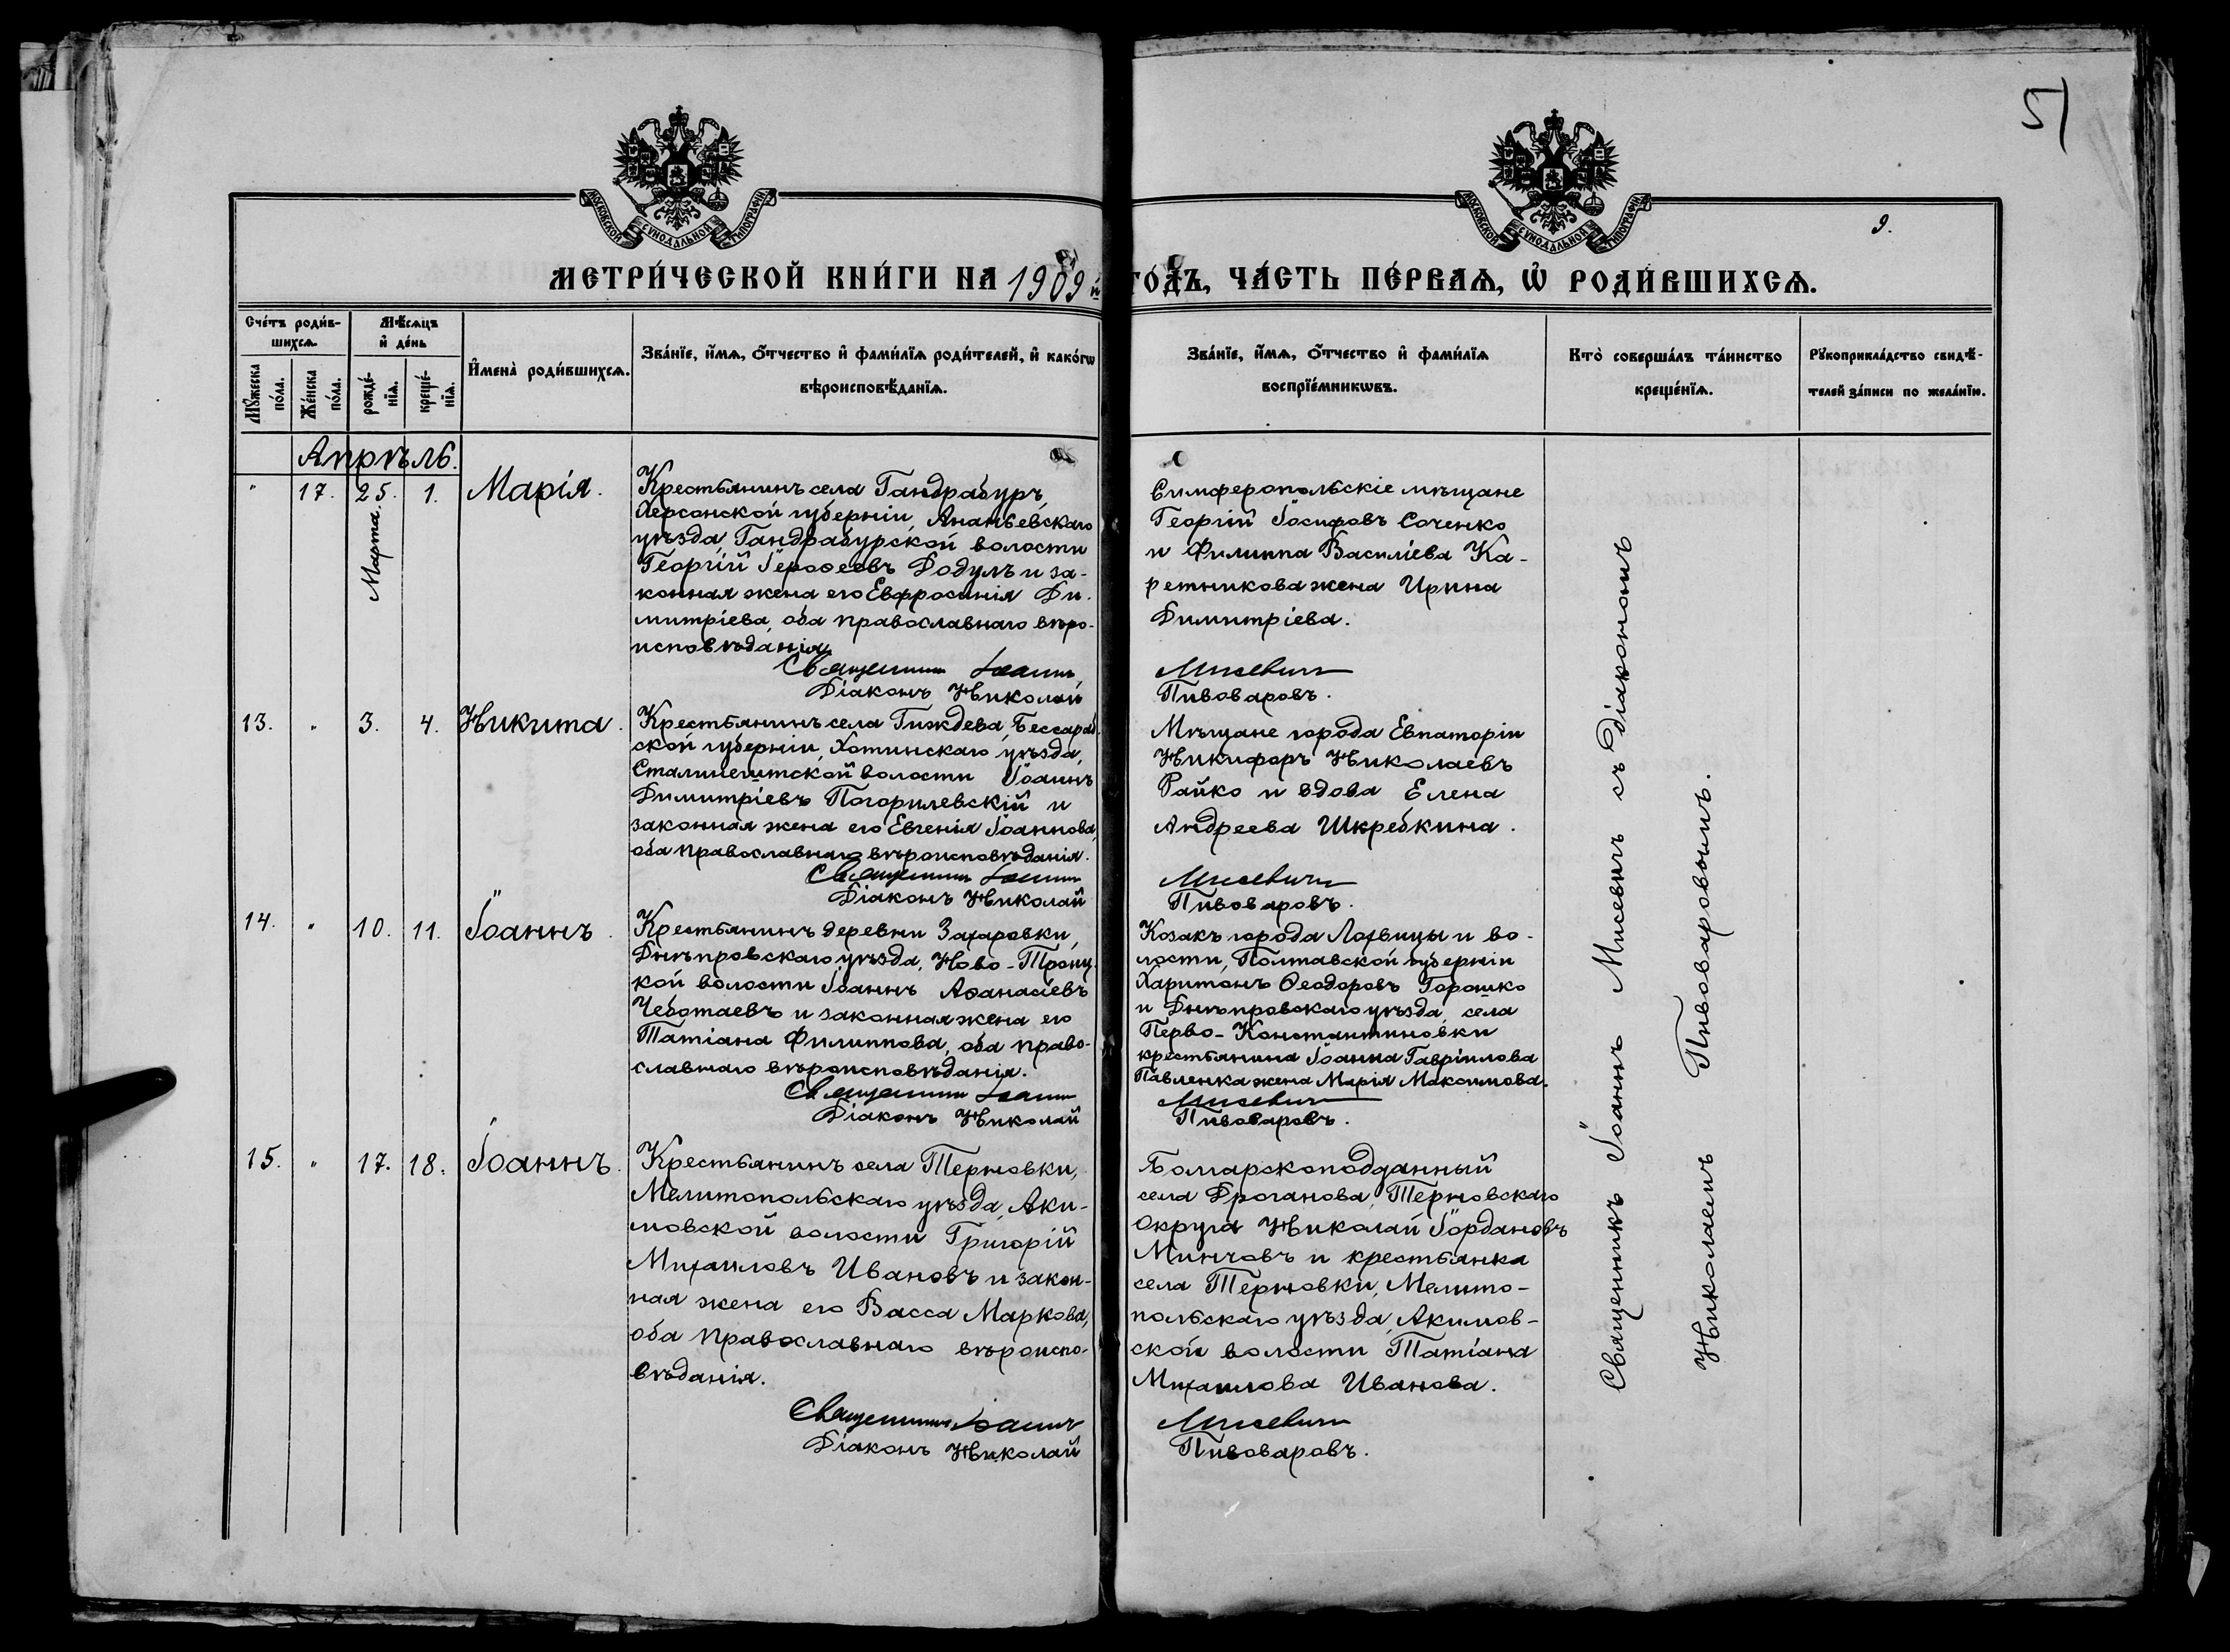 51
9.
МОСКОВСКОЙ СУНОДАЛЬНОЙ ТИПОГРАФІИ
МОСКОВСКОЙ СУНОДАЛЬНОЙ ТИПОГРАФІИ
МЕТРИ́ЧЕСКОЙ КНИ́ГИ НА 1909 й ГО́ДЪ, ЧА́СТЬ ПЕ́РВАѦ, Ѡ҆ РОДИ́ВШИХСѦ.
Сче́тъ роди́в-
шихсѧ.
Мꙋ́жеска
по́ла.
Же́нска
по́ла.
Мѣ́сѧцъ
и҆ де́нь
рожде́-
нїѧ.
креще́-
нїѧ.
И҆мена̀ роди́вшихсѧ.
Зва́нїе, и҆́мѧ, ѻ҆́тчество и҆ фами́лїѧ роди́телей, и҆ како́гѡ
вѣроисповѣ́данїѧ.
Зва́нїе, и҆́мѧ, ѻ҆́тчество и҆ фами́лїѧ
воспрїе́мникѡвъ.
Кто̀ соверша́лъ та́инство
креще́нїѧ.
Рꙋкоприкла́дство свидѣ́-
телей за́писи по жела́нїю.
Апрѣль.
" 17. 25. 1. Марія.
Марта.
Крестьянинъ села Гандрабуръ,
Херсонской губерніи, Ананьевскаго
уѣзда, Гандрабурской волости
Георгій Іероѳеевъ Додулъ и за-
конная жена его Евфросинія Ди-
митріева, оба православнаго вѣро-
исповѣданія.
Священникъ Іоаннъ
Діаконъ Николай
Симферопольскіе мѣщане
Георгій Іосифовъ Соченко
и Филиппа Василіева Ка-
ретникова жена Ирина
Димитріева.
Мисевичъ
Пивоваровъ.
13. " 3. 4. Никита.
Крестьянинъ села Гиждева, Бессараб-
ской губерніи, Хотинскаго уѣзда,
Сталинештской волости Іоаннъ
Димитріевъ Погорилевскій и
законная жена его Евгенія Іоаннова,
оба православнаго вѣроисповѣданія.
Священникъ Іоаннъ
Діаконъ Николай
Мѣщане города Евпаторіи
Никифоръ Николаевъ
Райко и вдова Елена
Андреева Шкребкина.
Мисевичъ
Пивоваровъ.
14. " 10. 11. Іоаннъ.
Крестьянинъ деревни Захаровки,
Днѣпровскаго уѣзда, Ново-Троиц-
кой волости Іоаннъ Аѳанасіевъ
Чеботаевъ и законная жена его
Татіана Филиппова, оба право-
славнаго вѣроисповѣданія.
Священникъ Іоаннъ
Діаконъ Николай
Козакъ города Лохвицы и во-
лости, Полтавской губерніи
Харитонъ Ѳеодоровъ Горошко
и Днѣпровскаго уѣзда, села
Перво-Константиновки
крестьянина Іоанна Гавріилова
Павленка жена Марія Максимова.
Мисевичъ
Пивоваровъ.
15. " 17. 18. Іоаннъ.
Крестьянинъ села Терновки,
Мелитопольскаго уѣзда, Аки-
мовской волости Григорій
Михаиловъ Ивановъ и закон-
ная жена его Васса Маркова,
оба православнаго вѣроиспо-
вѣданія.
Священникъ Іоаннъ
Діаконъ Николай
Болгарскоподданный
села Дроганова, Терновскаго
округа Николай Іордановъ
Минчовъ и крестьянка
села Терновки, Мелито-
польскаго уѣзда, Акимов-
ской волости Татіана
Михаилова Иванова.
Мисевичъ
Пивоваровъ.
Священникъ Іоаннъ Мисевичъ съ Діакономъ
Николаемъ Пивоваровымъ.